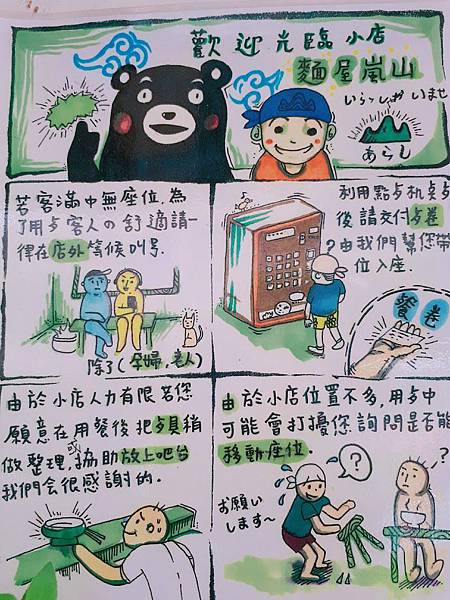 歡迎光臨小店
麵屋嵐山
いらっしゃいませ
あらし
若客滿中無座位.為
了用歺客人の舒適請一
律在店外等候叫号.
除了(孕婦.老人)
利用點歺机点歺
後請交付歺卷
?由我們幫您帶
位入座.
餐卷
由於小店人力有限若您
願意在用餐後把歺具稍
做整理,或協助放上吧台
我們會很感謝的.
由於小店位置不多,用歺中
可能會打擾您詢問是否能
移動座位.
?
?
お願い
します〜